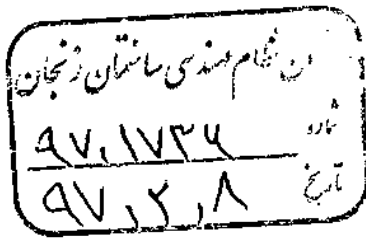 ن نظام مهندسی ساختمان زنجان
شماره ۹۷،۱۷۳۶
تاریخ ۹۷،۲،۸